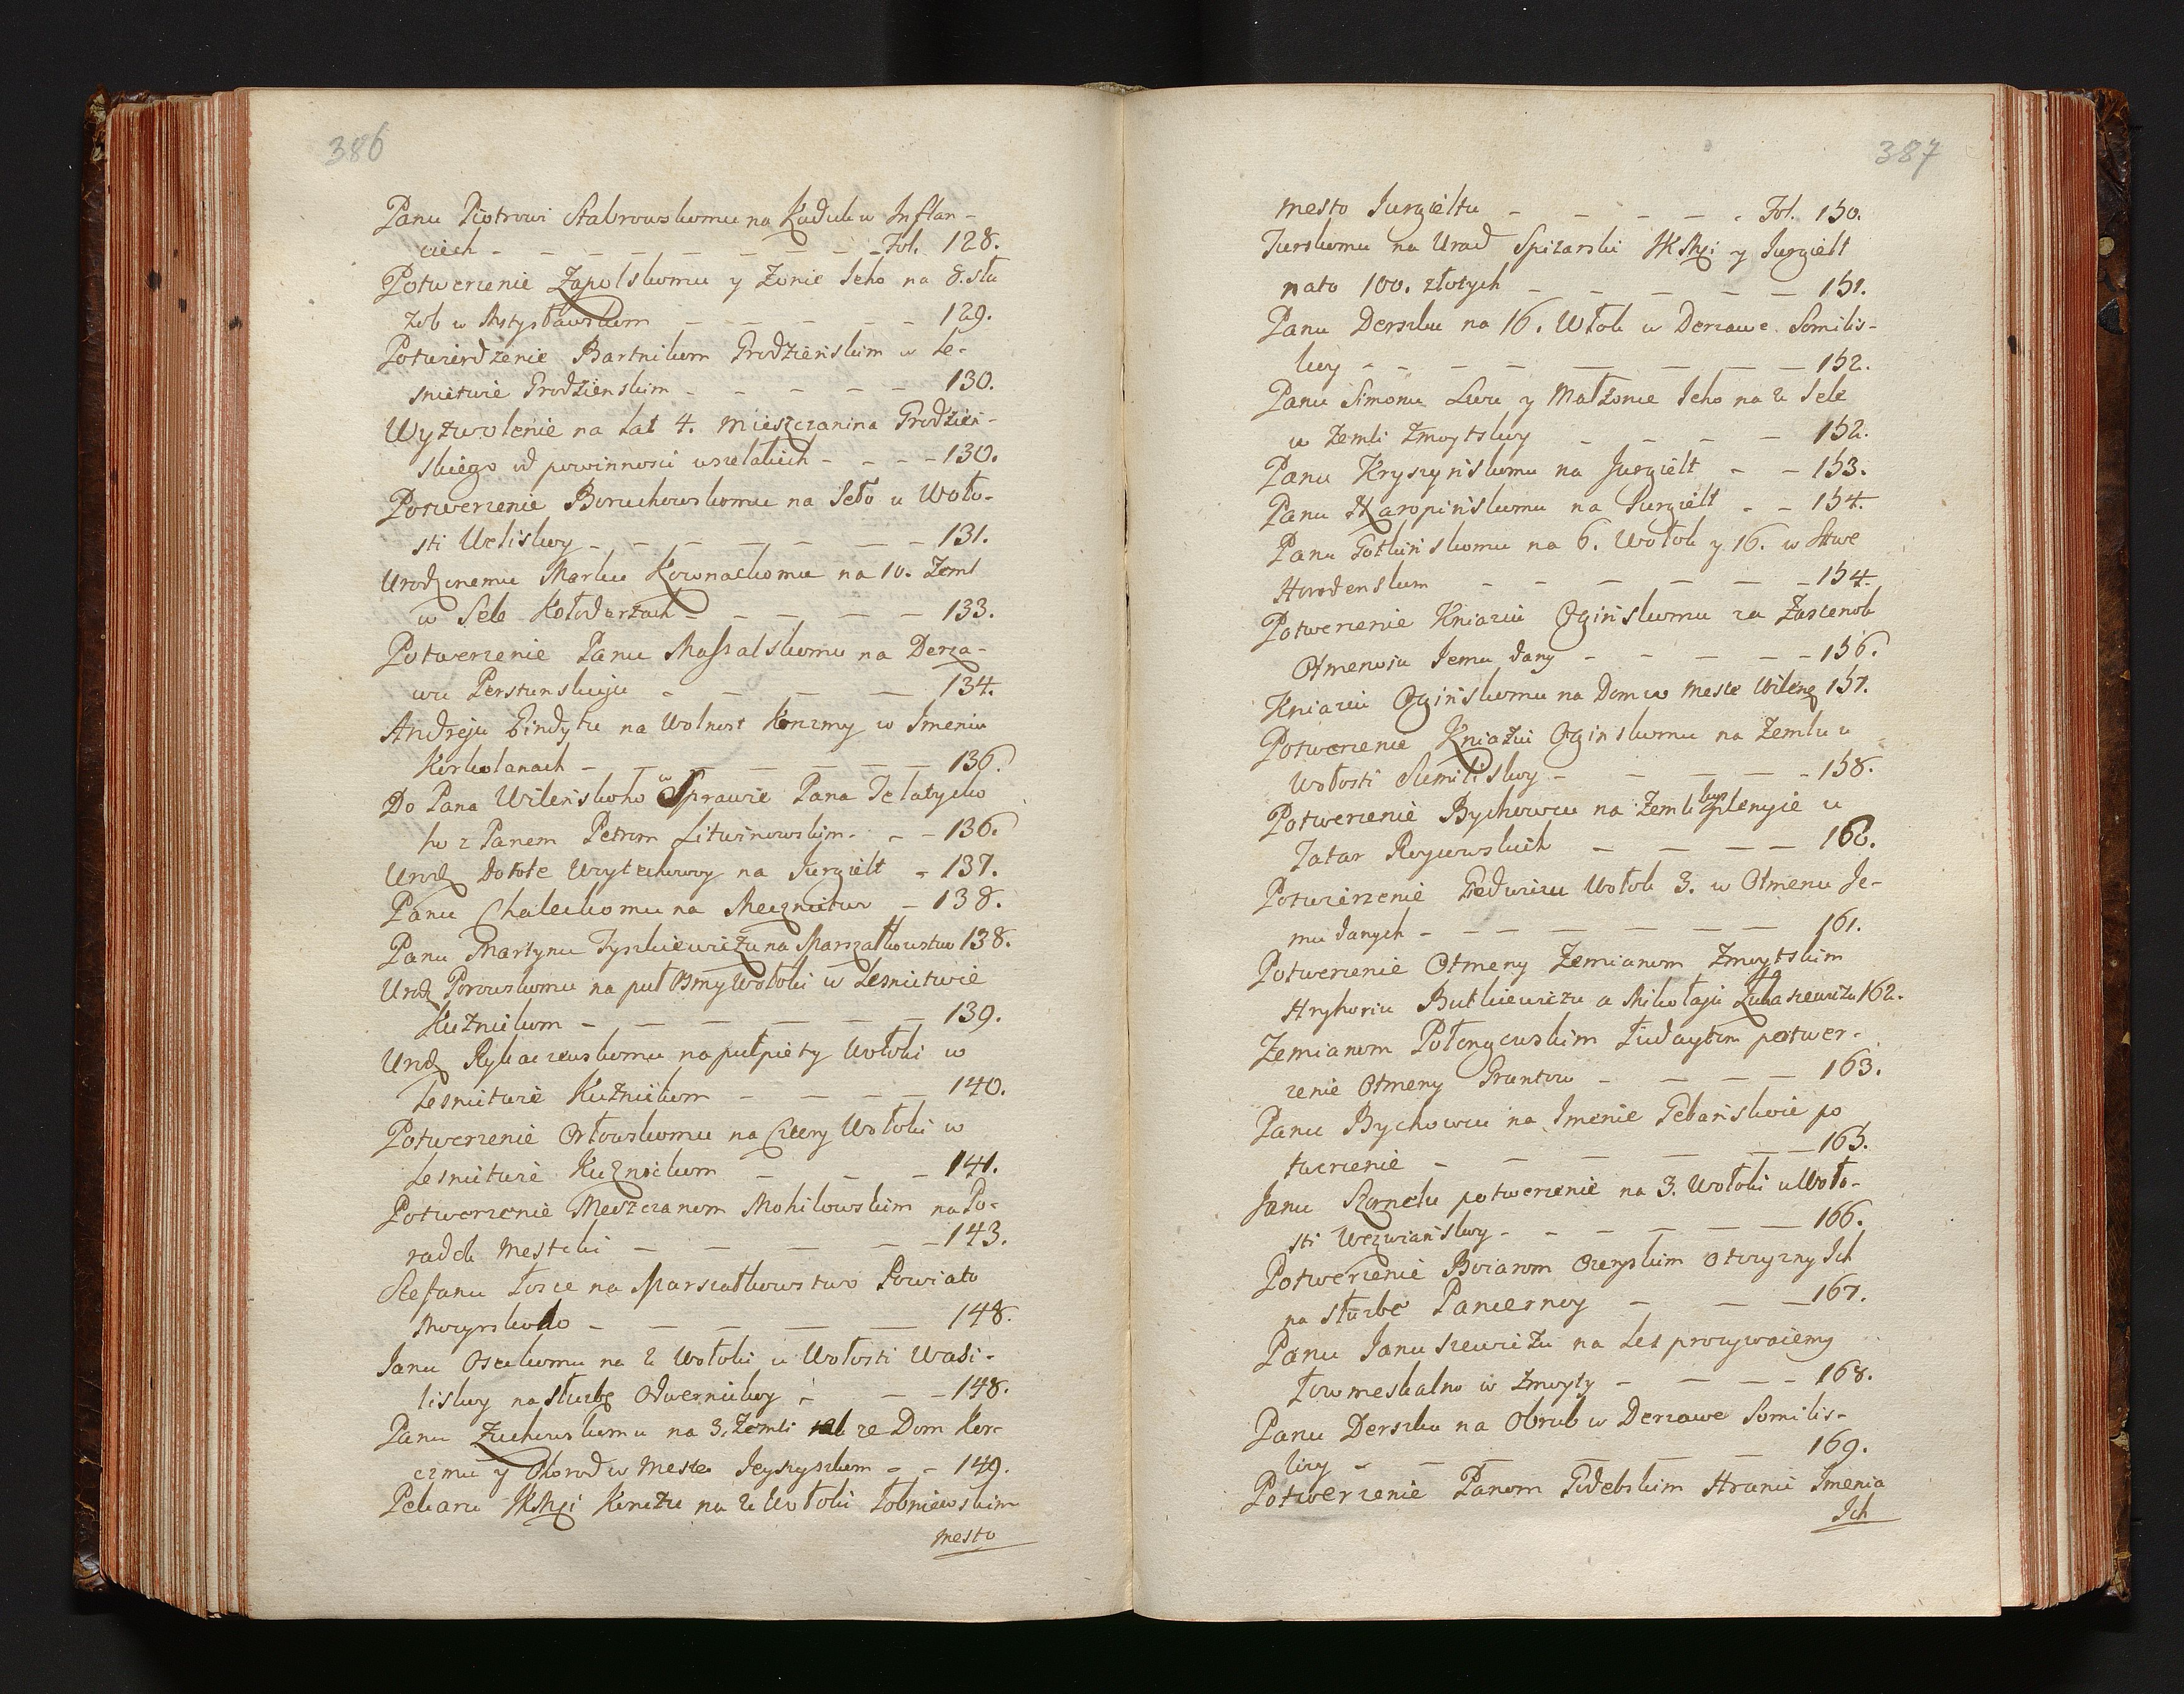 386
Panu Piotrowi Stabrowskomu na Kaduk w Inflan-
ciech - - - - - - - - Fol. 128.
Potwerzenie Zapolskomu y Zonie Jeho na 8. słu
zob w Mstysławskom - - - - - 129.
Potwierdzenie Bartnikom Grodzieńskim w Le-
snictwie Grodzienskim - - - - - 130.
Wyzwolenie na Lat 4. Mieszczanina Grodzień-
skiego od powinnosci wszelakich - - - - 130.
Potwerzenie Boruchowskomu na Seło u Woło-
sti Weliskoy - - - - - - - 131.
Urodzonemu Marku Kownackomu na 10. Zeml
w Sele Kołodarzach - - - - - 133.
Potwerzenie Panu Massalskomu na Derża-
wu Perstunskuju - - - - 134.
Andreju Bindytu na Wolnost Korzmy w Imeniu
Korkolanach - - - - - - - 136.
Do Pana Wileńskoho w Sprawie Pana Telatycko
ho z Panem Petrom Litwinowskim - - - 136.
Urodz Dorote Woytechowoy na Jurgielt - 137.
Panu Chaleckomu na Mecznictwo - 138.
Panu Martynu Tyszkiewiczu na Marszałkowstwo 138.
Urodz Porowskomu na puł Osmy Wołoki w Lesnictwie
Kuźnickom - - - - - - - 139.
Urodz Rybaczewskomu na puł piety Wołoki w
Lesnictwie Kuźnickom - - - - 140.
Potwerzenie Orłowskomu na Cztery Wołoki w
Lesnictwie Kuznickom - - - - 141.
Potwerzenie Meszczanom Mohilowskim na Po-
radok Mestcki - - - - - - 143.
Stefanu Łozce na Marszałkowstwo Powiato
Mozyrskoho - - - - - - 148.
Janu Osiekomu na 2 Wołoki u Wołosti Wasi-
liskoy na służbę Odwernickoy - - - 148.
Panu Zuchowskomu na 3. Zemli ze Dom Kor-
czmu y Ohorod w Meste Jeyszyszkom - - 149.
Pekaru JKMsci Kondżu na 2 Wołoki Łobniewskim
mesto
387
mesto Jurgieltu - - - - - Fol. 150.
Turskomu na Urad Spizarski JKMsci y Jurgielt
nato 100. złotych - - - - - - 151.
Panu Derszku na 16. Włok w Derzawe Somilis-
koy - - - - - - - - 152.
Panu Simonu Lwu y Małżonce Jeho na 2 Sele
w Zemli Zmoytskoy - - - - 152.
Panu Kryszyńskomu na Jurgielt - - 153.
Panu Haropińskomu na Jurgielt - - 154.
Panu Gotkińskomu na 6. Wołok y 16. w Stwe
Horodenskom - - - - - - 154.
Potwerzenie Kniaziu Ogińskomu za Zascenok
Otmenoju Jemu dany - - - - - 156.
Kniaziu Ogińskomu na Dom w Meste Wilenz 157.
Potwerzenie Kniaziu Oginskomu na Zemlu u
Wołosti Sumiliskoy - - - - - 158.
Potwerzenie Bychowcu na Zemli kuplenyie u
Tatar Royzewskich - - - - - 160.
Potwierzenie Gedwiżu Wołok 3. w Otmenu Je-
mu danych - - - - - - - 161.
Potwerzenie Otmeny Zemianom Zmoytskim
Hryhoriu Butkiewiczu a Mikołaju Łukaszewiczu 162.
Zemianom Połongowskim Łudaytom potwer-
zenie Otmeny Gruntow - - - - 163.
Panu Bychowcu na Imenie Gebańskoie po
twerzenie - - - - - - 165.
Janu Szornelu potwerzenie na 3. Wołoki u Woło-
sti Wezwianskoy - - - - - - 166.
Potwerzenie Boiarom Ozeryskim otczyzny Ich
na służbe Pancernoy - - - 167.
Panu Januszewiczu na Les prozywaiemy
Łowmeskalno w Zmoyty - - - - 168.
Panu Derszku na Obrub w Derzawe Somilis-
koy - - - - - - - 169.
Potwerzenie Panom Gdebskim Hranic Imenia
Ich